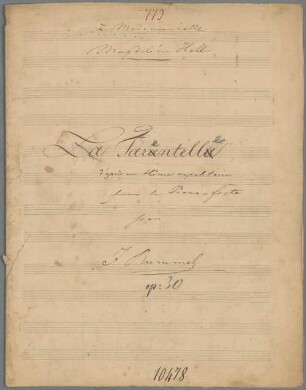 773
à Mademoiselle
Magdeleine Holl
La Tarentelle
d'après un thème napolitain
pour le Pianoforte
par
J. Rummel
op: 30
10478